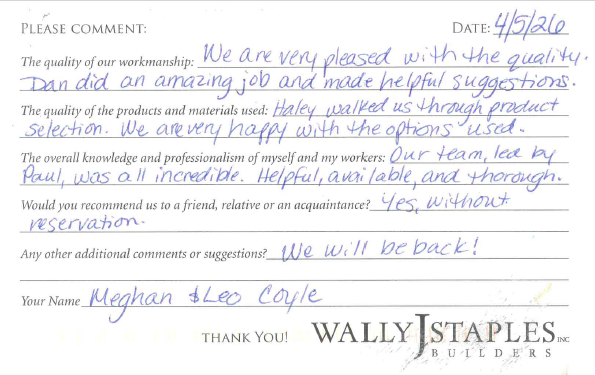 PLEASE COMMENT: DATE: 4/5/26
The quality of our workmanship: We are very pleased with the quality.
Dan did an amazing job and made helpful suggestions.
The quality of the products and materials used: Haley walked us through product
selection. We are very happy with the options used.
The overall knowledge and professionalism of myself and my workers: Our team, led by
Paul, was all incredible. Helpful, available, and thorough.
Would you recommend us to a friend, relative or an acquaintance? Yes, without
reservation.
Any other additional comments or suggestions? We will be back!
Your Name Meghan & Leo Coyle
THANK YOU! WALLY J STAPLES INC
BUILDERS